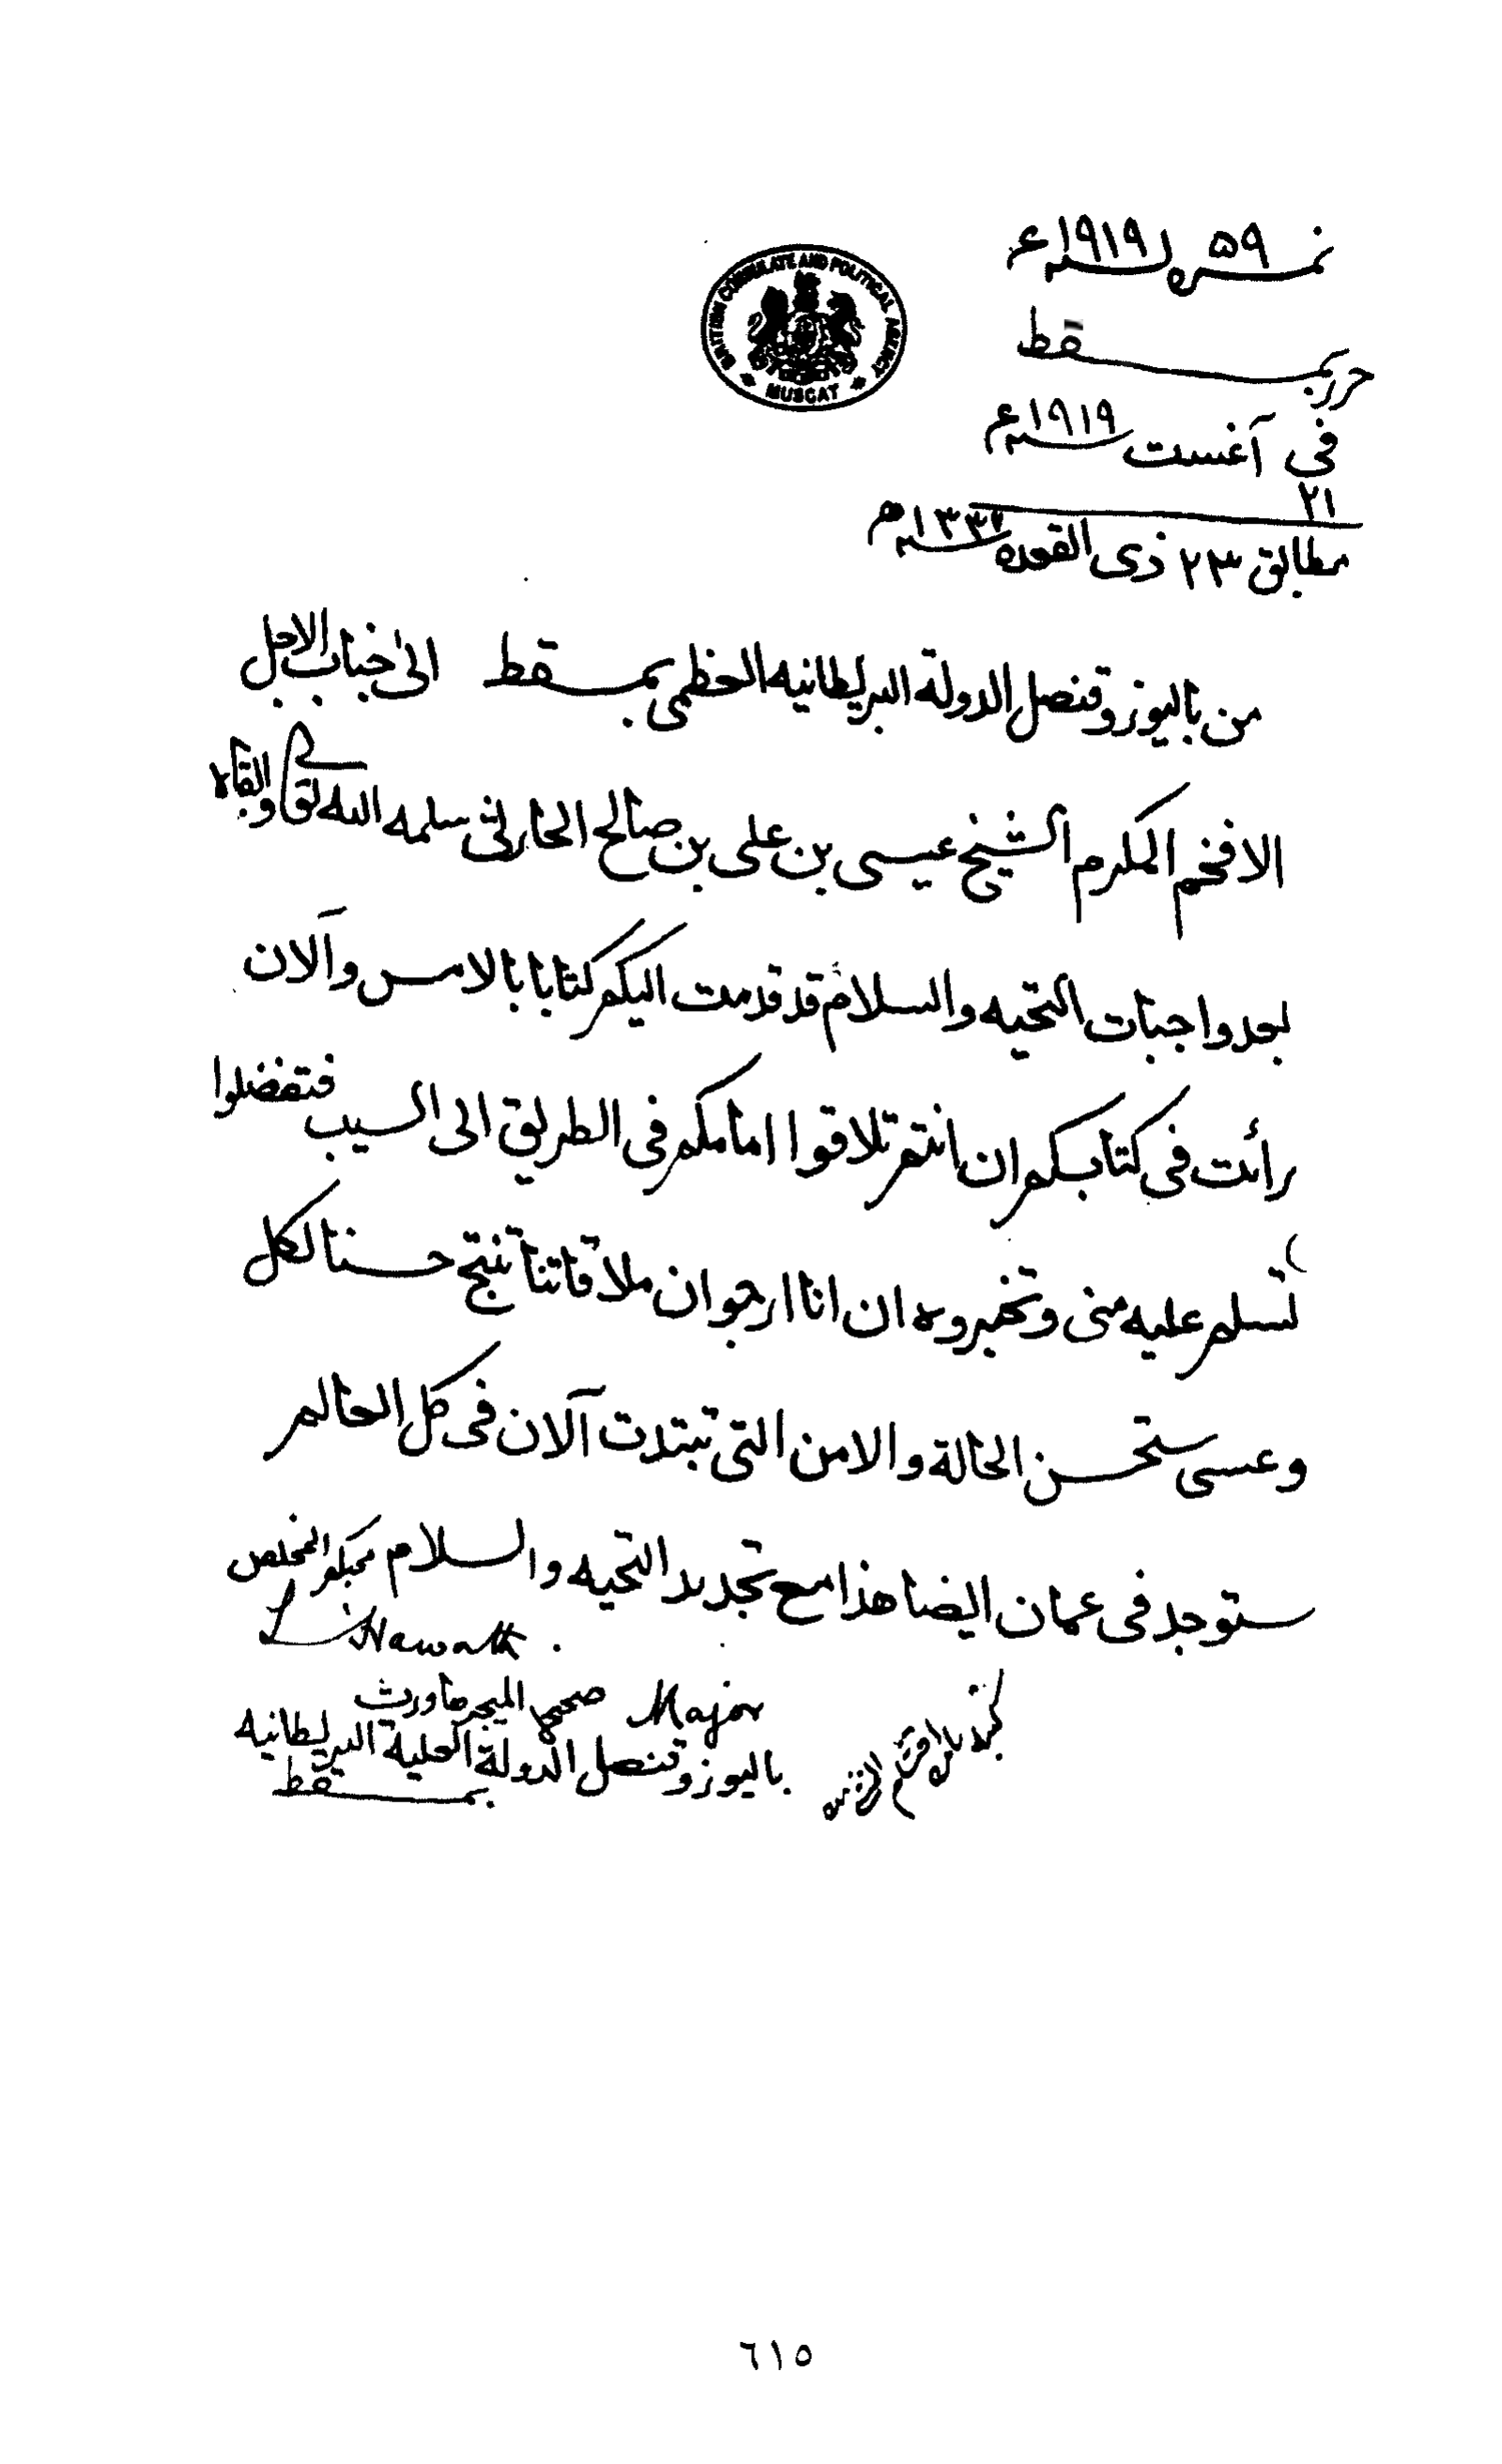 نمره ٥٩ لسنه ١٩١٩ع
BRITISH CONSULATE AND POLITICAL AGENCY
MUSCAT
حرر بمسقط
فى آغست سنه ١٩١٩ع
٢١
مطابق ٢٣ ذى القعده سنه ١٣٣٧ه
من باليوز وقنصل الدولة البريطانيه العظمى بمسقط الى جناب الاجل
الافخم المكرم الشيخ عيسى بن على بن صالح الحارثى سلمه الله تعالى وابقاه
بعد واجبات التحيه والسلام قد قدمت اليكم كتابا بالامس وآلان
رائت فى كتابكم ان انتم تلاقوا امامكم فى الطريق الى السيب فتفضلوا
تسلم عليه منى وتخبروه ان انا ارجو ان ملاقاتنا تنتج حسنا لكل
وعسى ستحسن الحالة والامن التى تبتدت آلان فى كل العالم
ستوجد فى عمان ايضا هذا مع تجديد التحيه والسلام محبكم المخلص
L Haworth
Major صحيح الميجر هاورث
باليوز وقنصل الدولة العلية البريطانيه
بمسقط
٦١٥